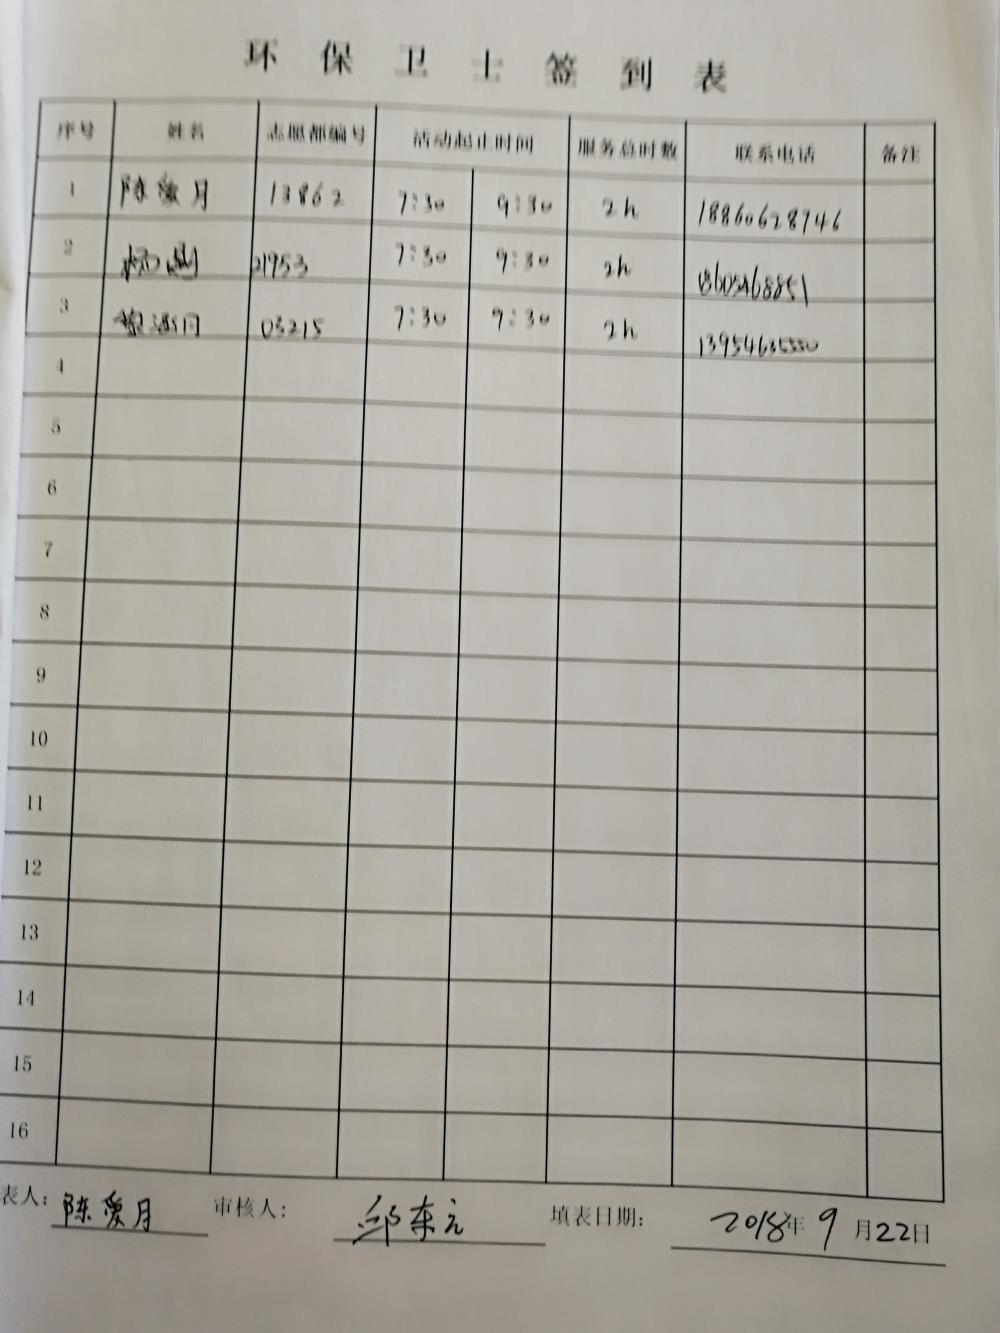 环保卫士签到表
序号 姓名 志愿都编号 活动起止时间 服务总时数 联系电话 备注
1 陈爱月 13862 7:30 9:30 2h 18860628746
2 21953 7:30 9:30 2h
3 03215 7:30 9:30 2h 13954635550
4
5
6
7
8
9
10
11
12
13
14
15
16
表人: 陈爱月 审核人: 邱东元 填表日期: 2018年9月22日